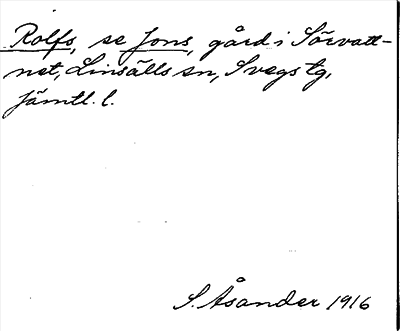 Rolfs, se Jons, gård i Sörvatt-
net, Linsälls sn, Svegs tg,
Jämtl. l.
S. Åsander 1916